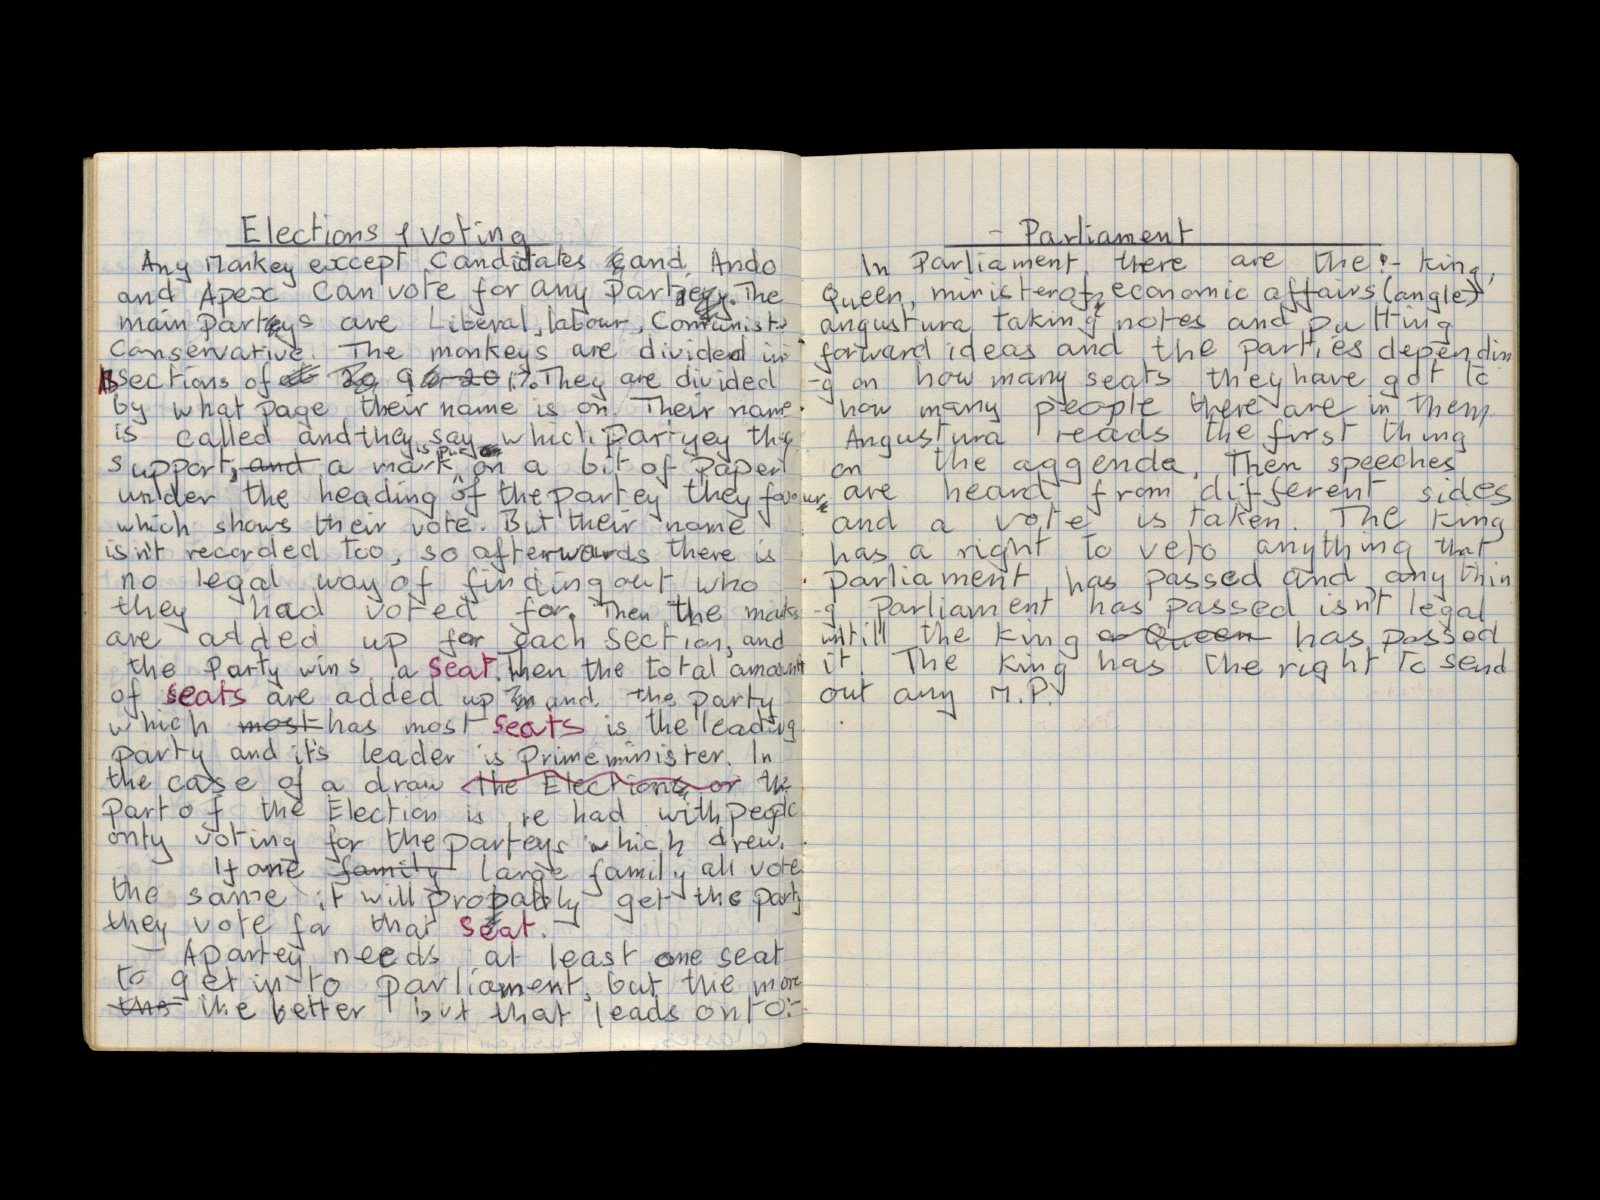 Elections & voting
Any Monkey except Candidates and Ando
and Apex can vote for any Party. The
main Partys are Liberal, labour, Comunist
Conservative. The monkeys are divided in
sections of They are divided
by what page their name is on. Their name
is called and they say which Partyey they
support, and a mark is put on a bit of paper
under the heading of the partey they favour
which shows their vote. But their name
isn't recorded too, so afterwards there is
no legal way of finding out who
they had voted for. Then the marks
are added up for each section, and
the Party wins a seat. Then the total amount
of seats are added up and the party
which most has most seats is the leading
party and it's leader is Prime minister. In
the case of a draw the Elections or the
part of the Election is re had with people
only voting for the parteys which drew.
If one family large family all vote
the same it will probably get the party
they vote for that seat.
A partey needs at least one seat
to get in-to parliament, but the more
the the better but that leads onto:-
- Parliament
In Parliament there are the:- King,
Queen, minister of economic affairs (angle)
angustura taking notes and putting
forward ideas and the parties dependin
-g on how many seats they have got to
how many people there are in them
Angustura reads the first thing
on the aggenda. Then speeches
are heard from different sides
and a vote is taken. The King
has a right to veto anything that
parliament has passed and any thin
-g Parliament has passed isn't legal
untill the King or Queen has passed
it. The King has the right to send
out any M.P.